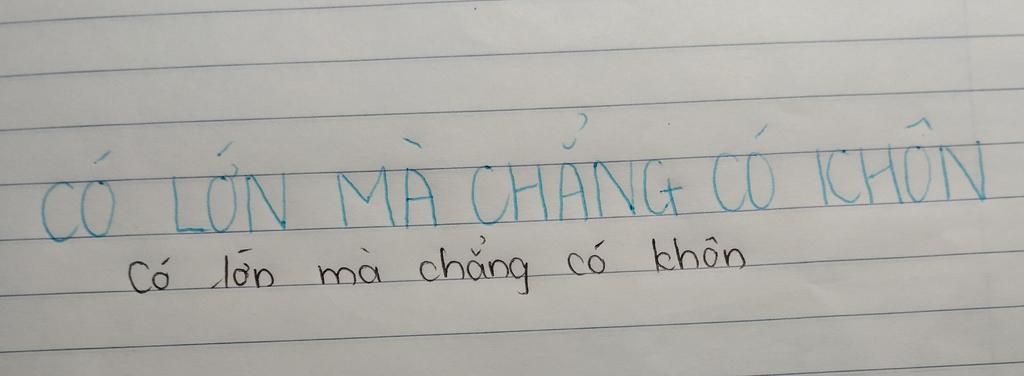 CÓ LỚN MÀ CHẲNG CÓ KHÔN
Có lớn mà chẳng có khôn